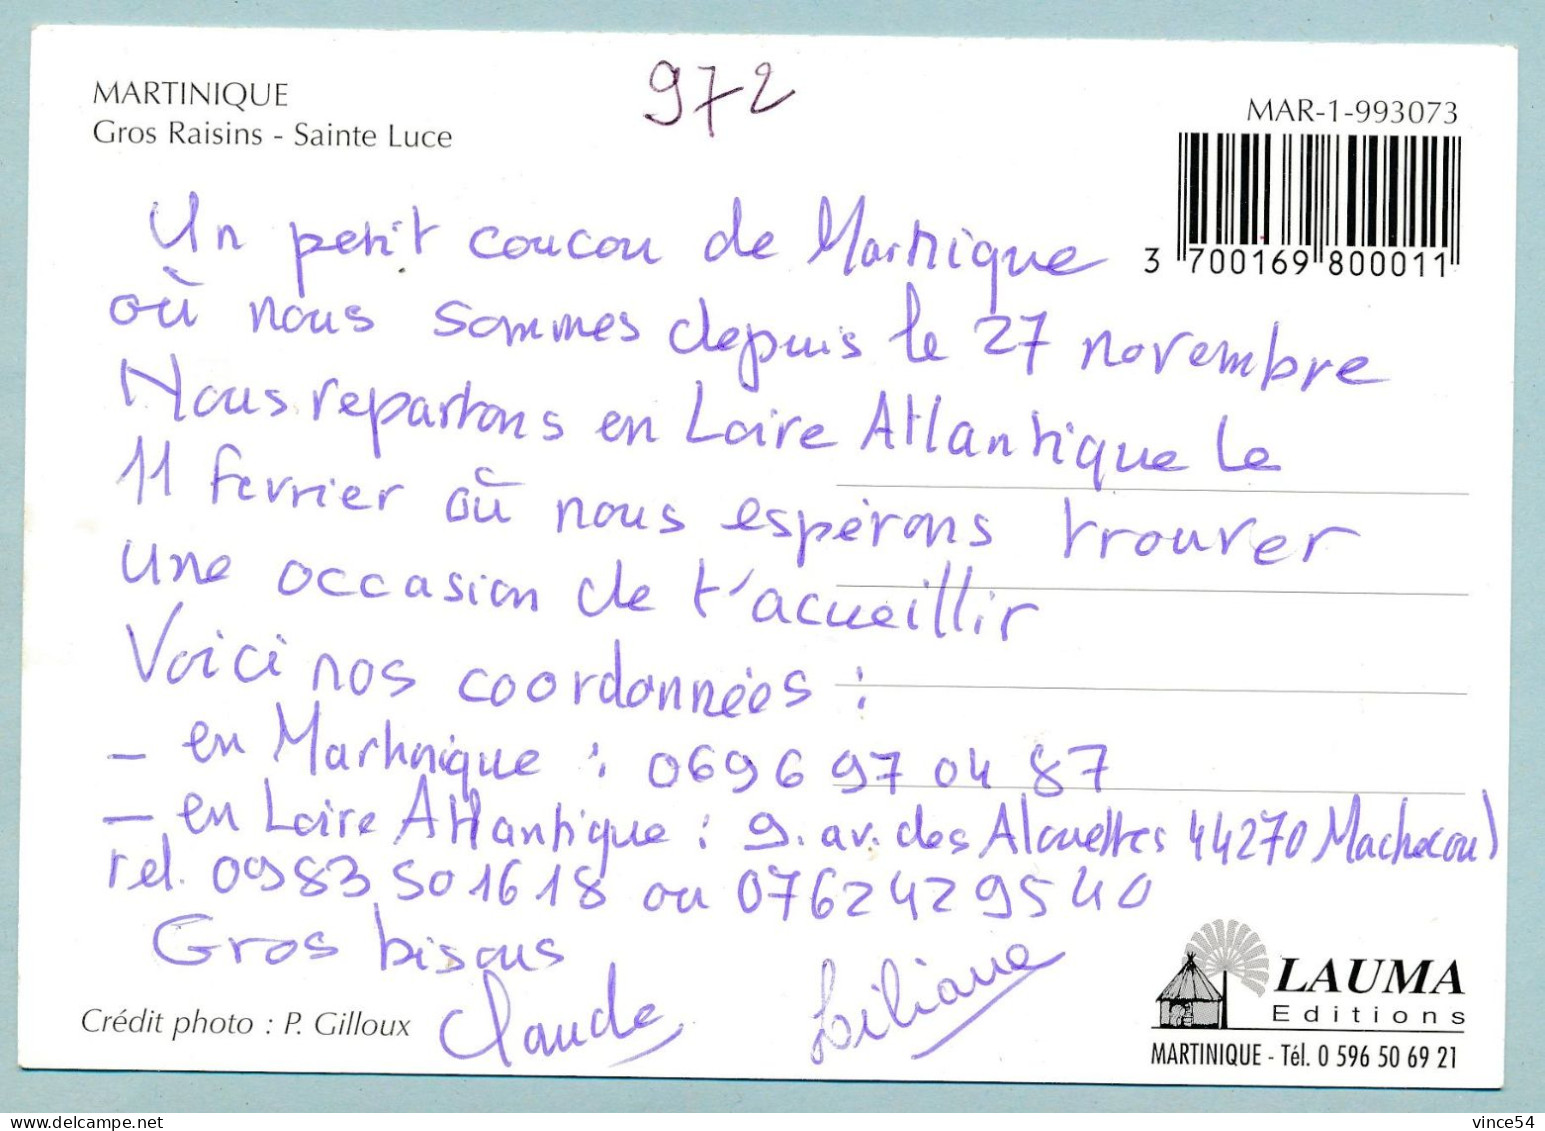 MARTINIQUE
Gros Raisins - Sainte Luce
972
MAR-1-993073
3 700169 800011
Un petit coucou de Martinique
où nous sommes depuis le 27 novembre
Nous repartons en Loire Atlantique le
11 fevrier où nous espérons trouver
une occasion de t'acueillir
Voici nos coordonnées :
- en Martinique : 0696 97 04 87
- en Loire Atlantique : 9. av. des Alouettes 44270 Machecoul
tel. 0983501618 ou 0762429540
Gros bisous
Claude Liliane
Crédit photo : P. Gilloux
LAUMA
Editions
MARTINIQUE - Tél. 0 596 50 69 21
vince54